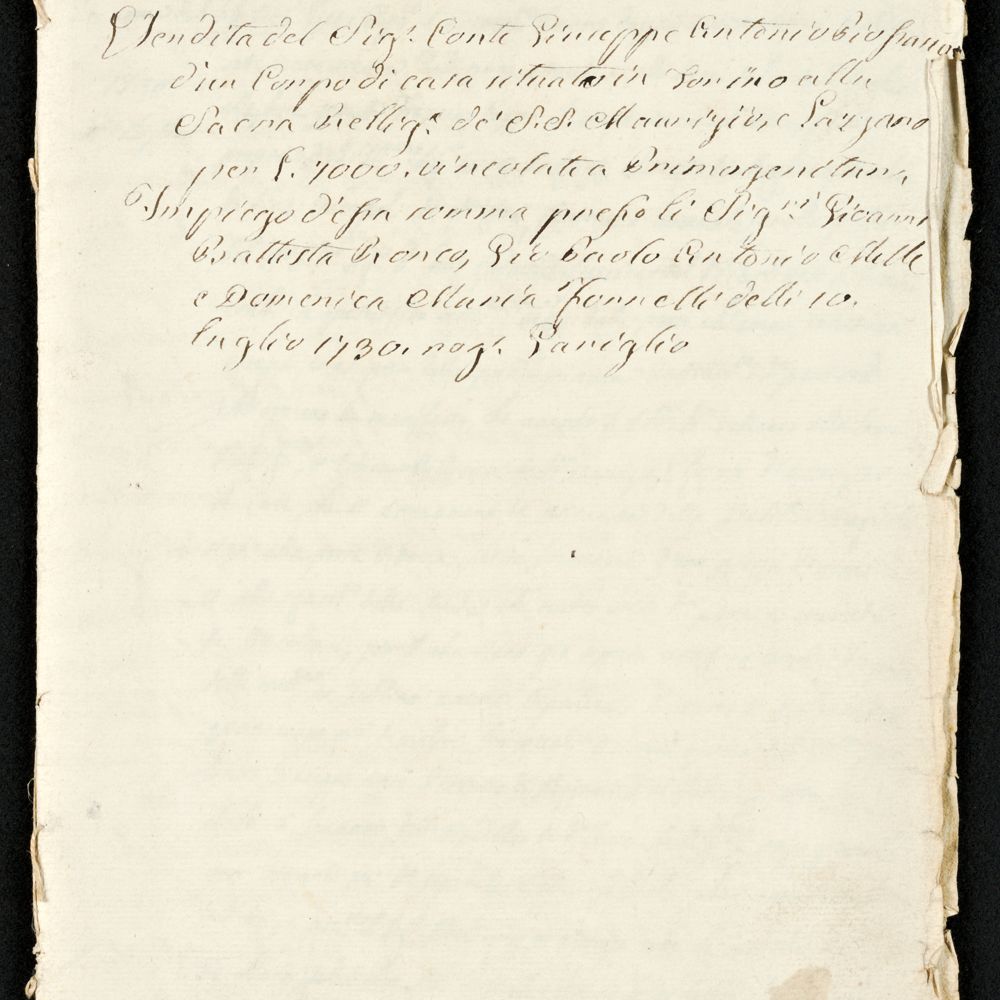 Vendita del Sig.r Conte Giuseppe Antonio Piossasco
d'un Corpo di casa situato in Torino alla
Sacra Rellig.e de' S.S. Maurizio, e Lazzaro
per L. 7000. vincolati a Primogenitura,
Impiego d'essa somma presso li Sig.ri Gioanni
Battista Ronco, Gio Paolo Antonio Mille
e Domenica Maria Tonnelli delli 10.
luglio 1730. rog.